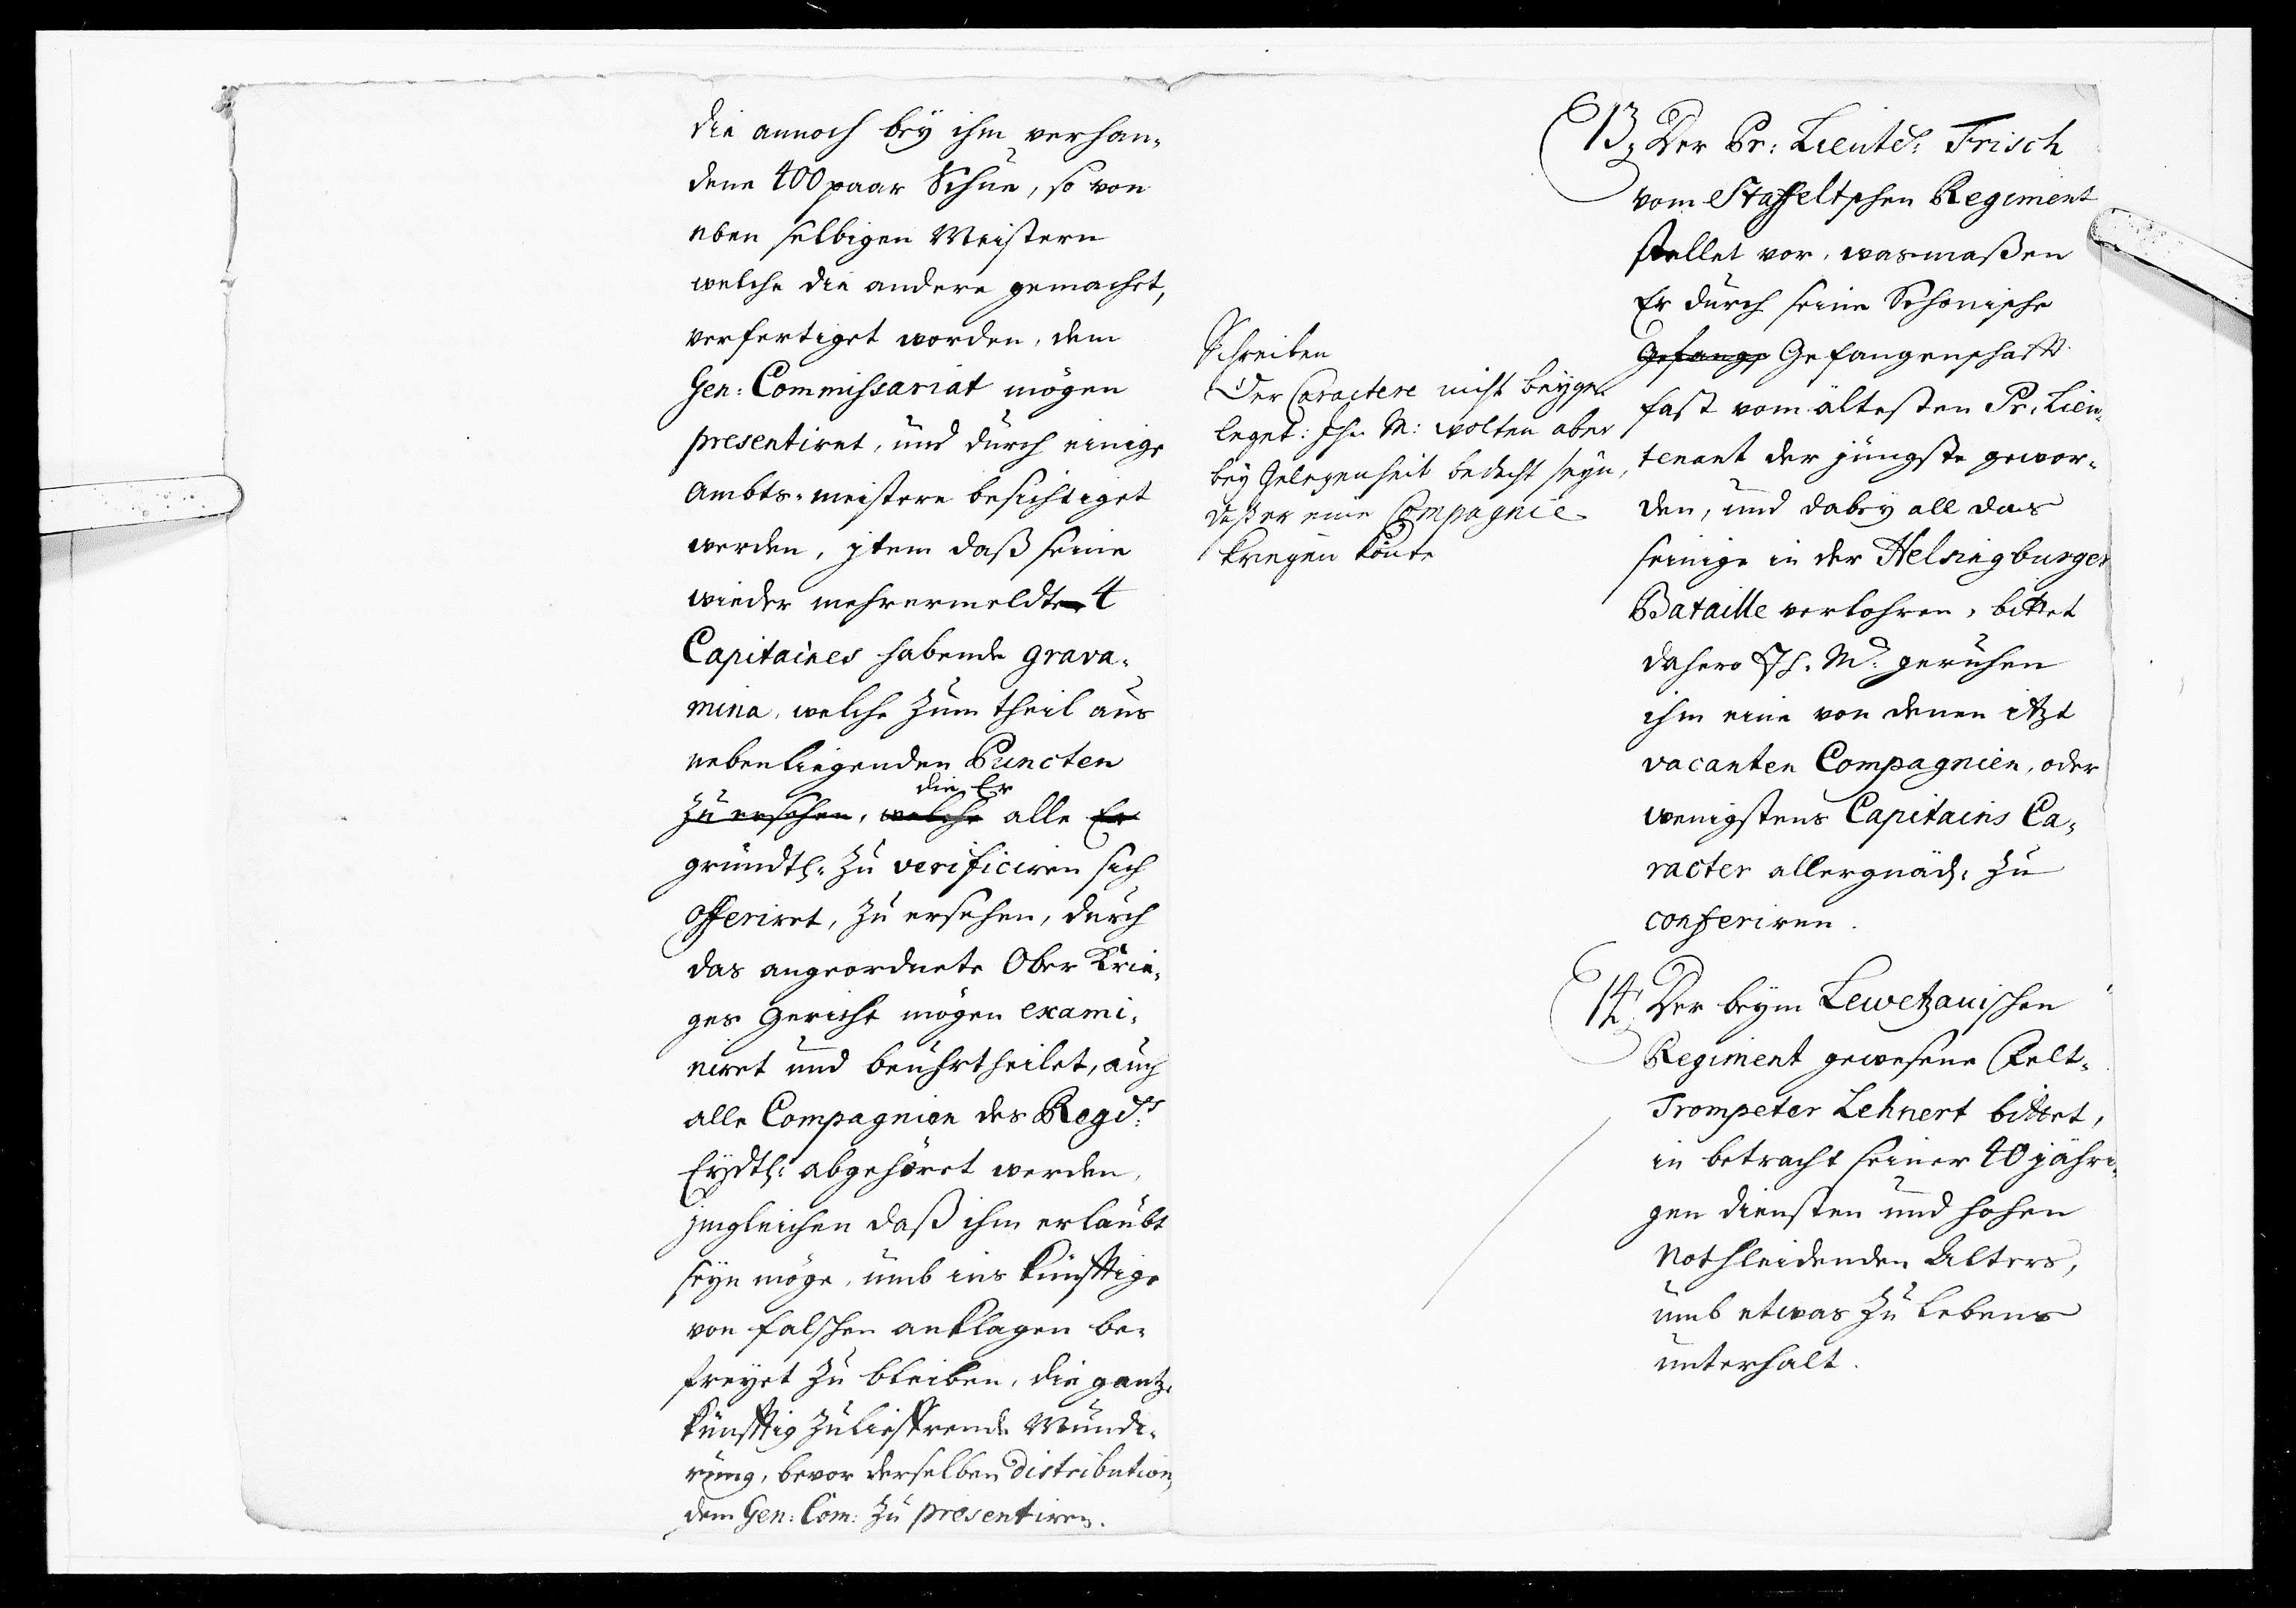 die annoch bey ihm verhan-
dene 400 paar Schue, so von
eben selbigen Meistern
welche die andere gemachet,
verfertiget worden, dem
Gen: Commissariat mögen
presentiret, und durch einige
Ambts-meistere besichtiget
werden, jtem daß seine
wieder mehrermeldte 4
Capitaines habende grava-
mina, welche zum theil aus
nebenliegenden Puncten
die Er
zu ersehen, welche alle Er
gründtl: zu verificiren sich
offeriret, zu ersehen, durch
das angeordnete Ober Krie-
ges Gericht mögen exami-
niret und beuhrtheilet, auch
alle Compagnien des Regts:
Eydtl: abgehöret werden,
jmgleichen daß ihm erlaubt
seyn möge, umb ins künfftige
von falschen anklagen be-
freyet zu bleiben, die gantze
künfftig zu lieffrende Mundi-
rung, bevor derselben distribution,
dem Gen: Com: zu presentiren.
Schreiben
Der Caractere nicht beyge-
leget: Ihr M: wolten aber
bey Gelegenheit bedacht seyn,
daß er eine Compagnie
kregen könte
13, Der Pr: Lieutn: Frisch
vom Staffeltschen Regiment
stellet vor, wasmaßen
Er durch seine Schonische
Gefange Gefangenschafft
fast vom ältesten Pr: Lieu-
tenant der jüngste gewor-
den, und dabey all das
seinige in der Helsingburger
Bataille verlohren, bittet
dahero Ih. M: geruhen
ihm eine von denen itzt
vacanten Compagnien, oder
wenigstens Capitains Ca-
racter allergnäd: zu
conferiren.
14, Der beym Lewetzauischen
Regiment gewesene Felt-
Trompeter Lehnert bittet,
in betracht seiner 40 jähri-
gen diensten und hohen
Nothleidenden Alters,
umb etwas zu lebens
unterhalt.